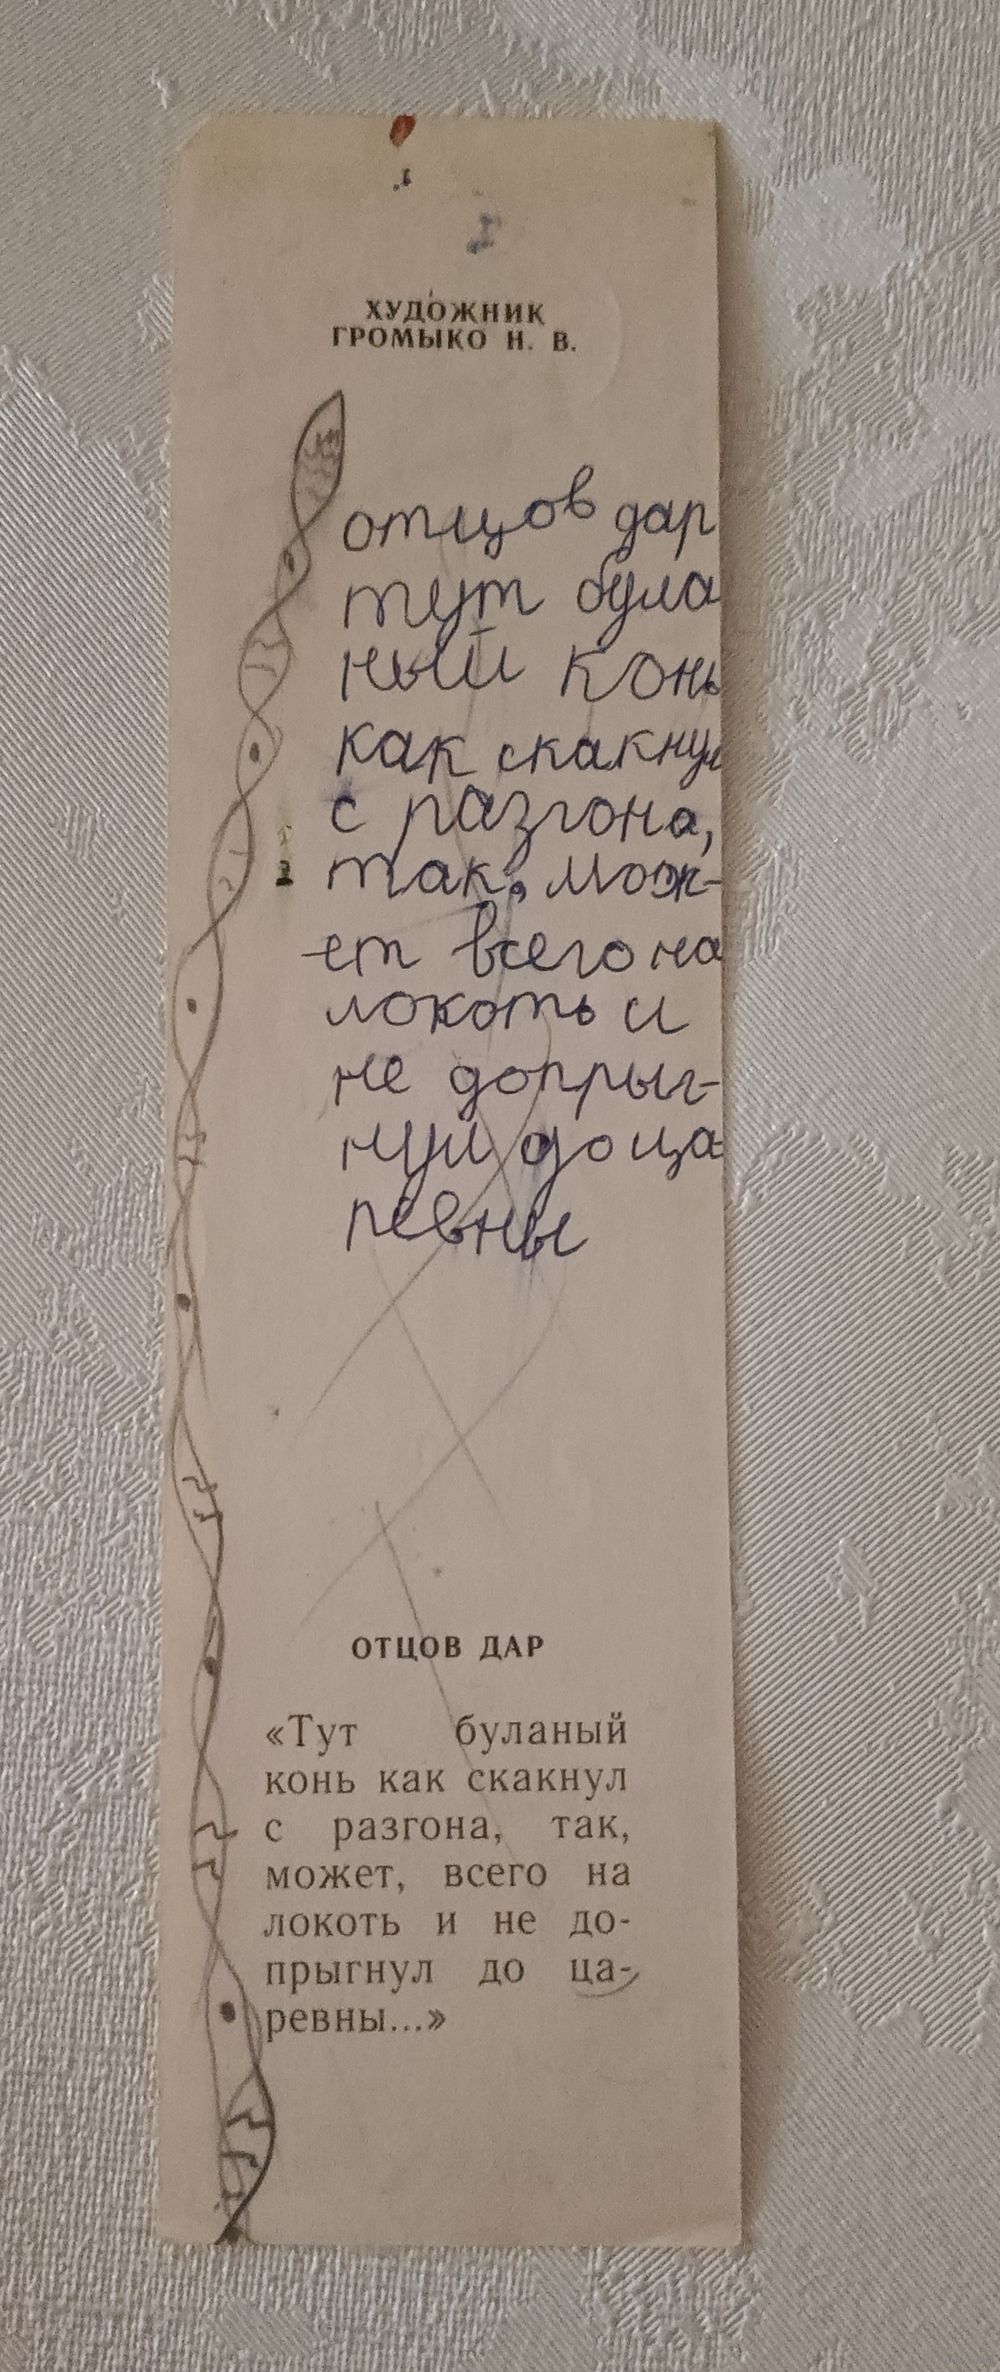 ХУДОЖНИК
ГРОМЫКО Н. В.
отцов дар
тут була
ный конь
как скакнул
с разгона,
так, мож-
ет всего на
локоть и
не допрыг-
нул до ца
ревны
ОТЦОВ ДАР
«Тут буланый
конь как скакнул
с разгона, так,
может, всего на
локоть и не до-
прыгнул до ца-
ревны...»